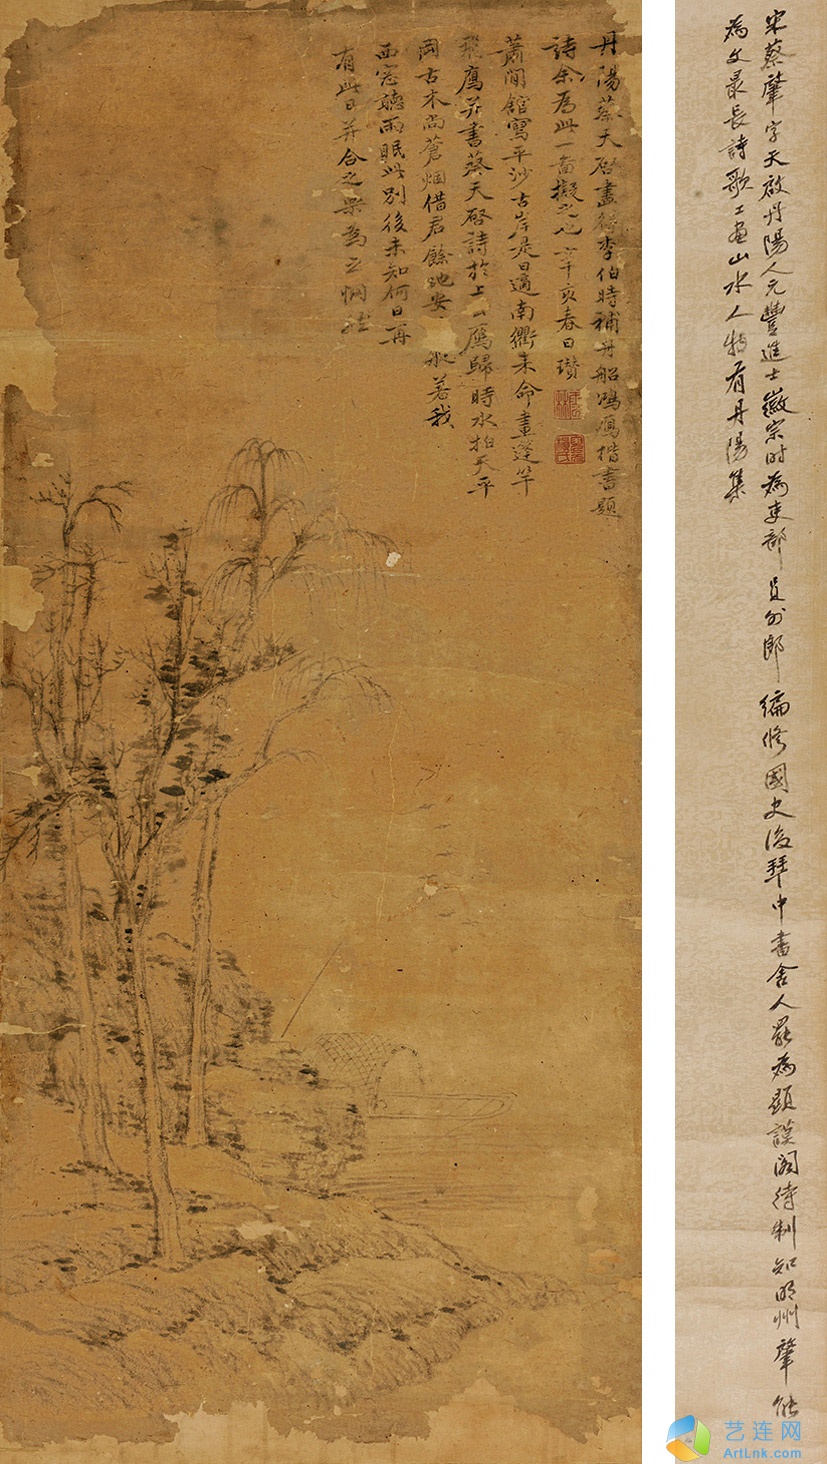 丹陽蔡天啓畫得李伯時補舟船鴻鴈楷書題
詩余為此一畨擬之也辛亥春日瓚
蕭閒館寫平沙古岸是日適南衢来命畫蓬竿
飛鴈并書蔡天啓詩於上 鴈歸時水拍天平
岡古木尚蒼烟借君餘地安 著我
西窓聴雨眠此別後未知何日再
有此日并合之樂為之惘然
宋蔡肇字天啟丹陽人元豐進士徽宗時為吏部員外郎編修國史後拜中書舍人罷為顯謨閣待制知明州肇能
為文最長詩歌工畫山水人物有丹陽集
艺连网
ArtLnk.com